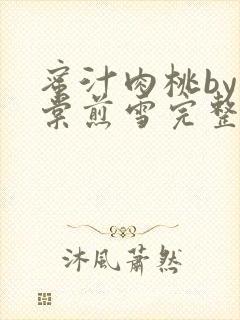 蜜汁肉桃by
棠煎雪完整
沐風蕭然